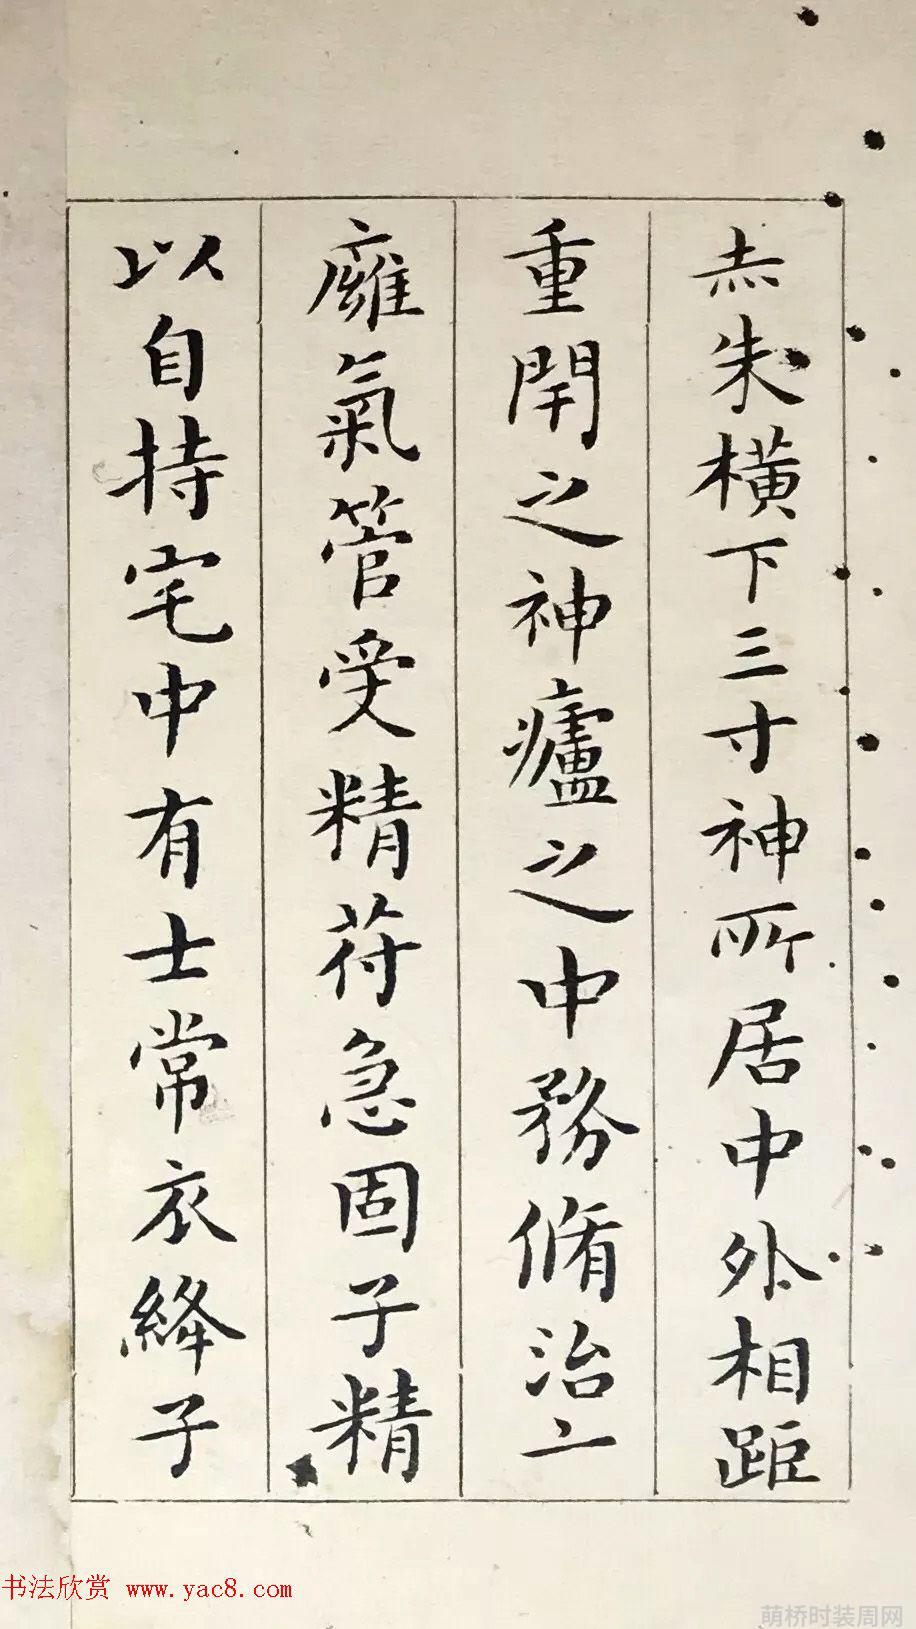 赤朱橫下三寸神所居中外相距
重閇之神廬之中務脩治亠
廱氣管受精苻急固子精
以自持宅中有士常衣絳子
书法欣赏 www.yac8.com
萌桥时装周网